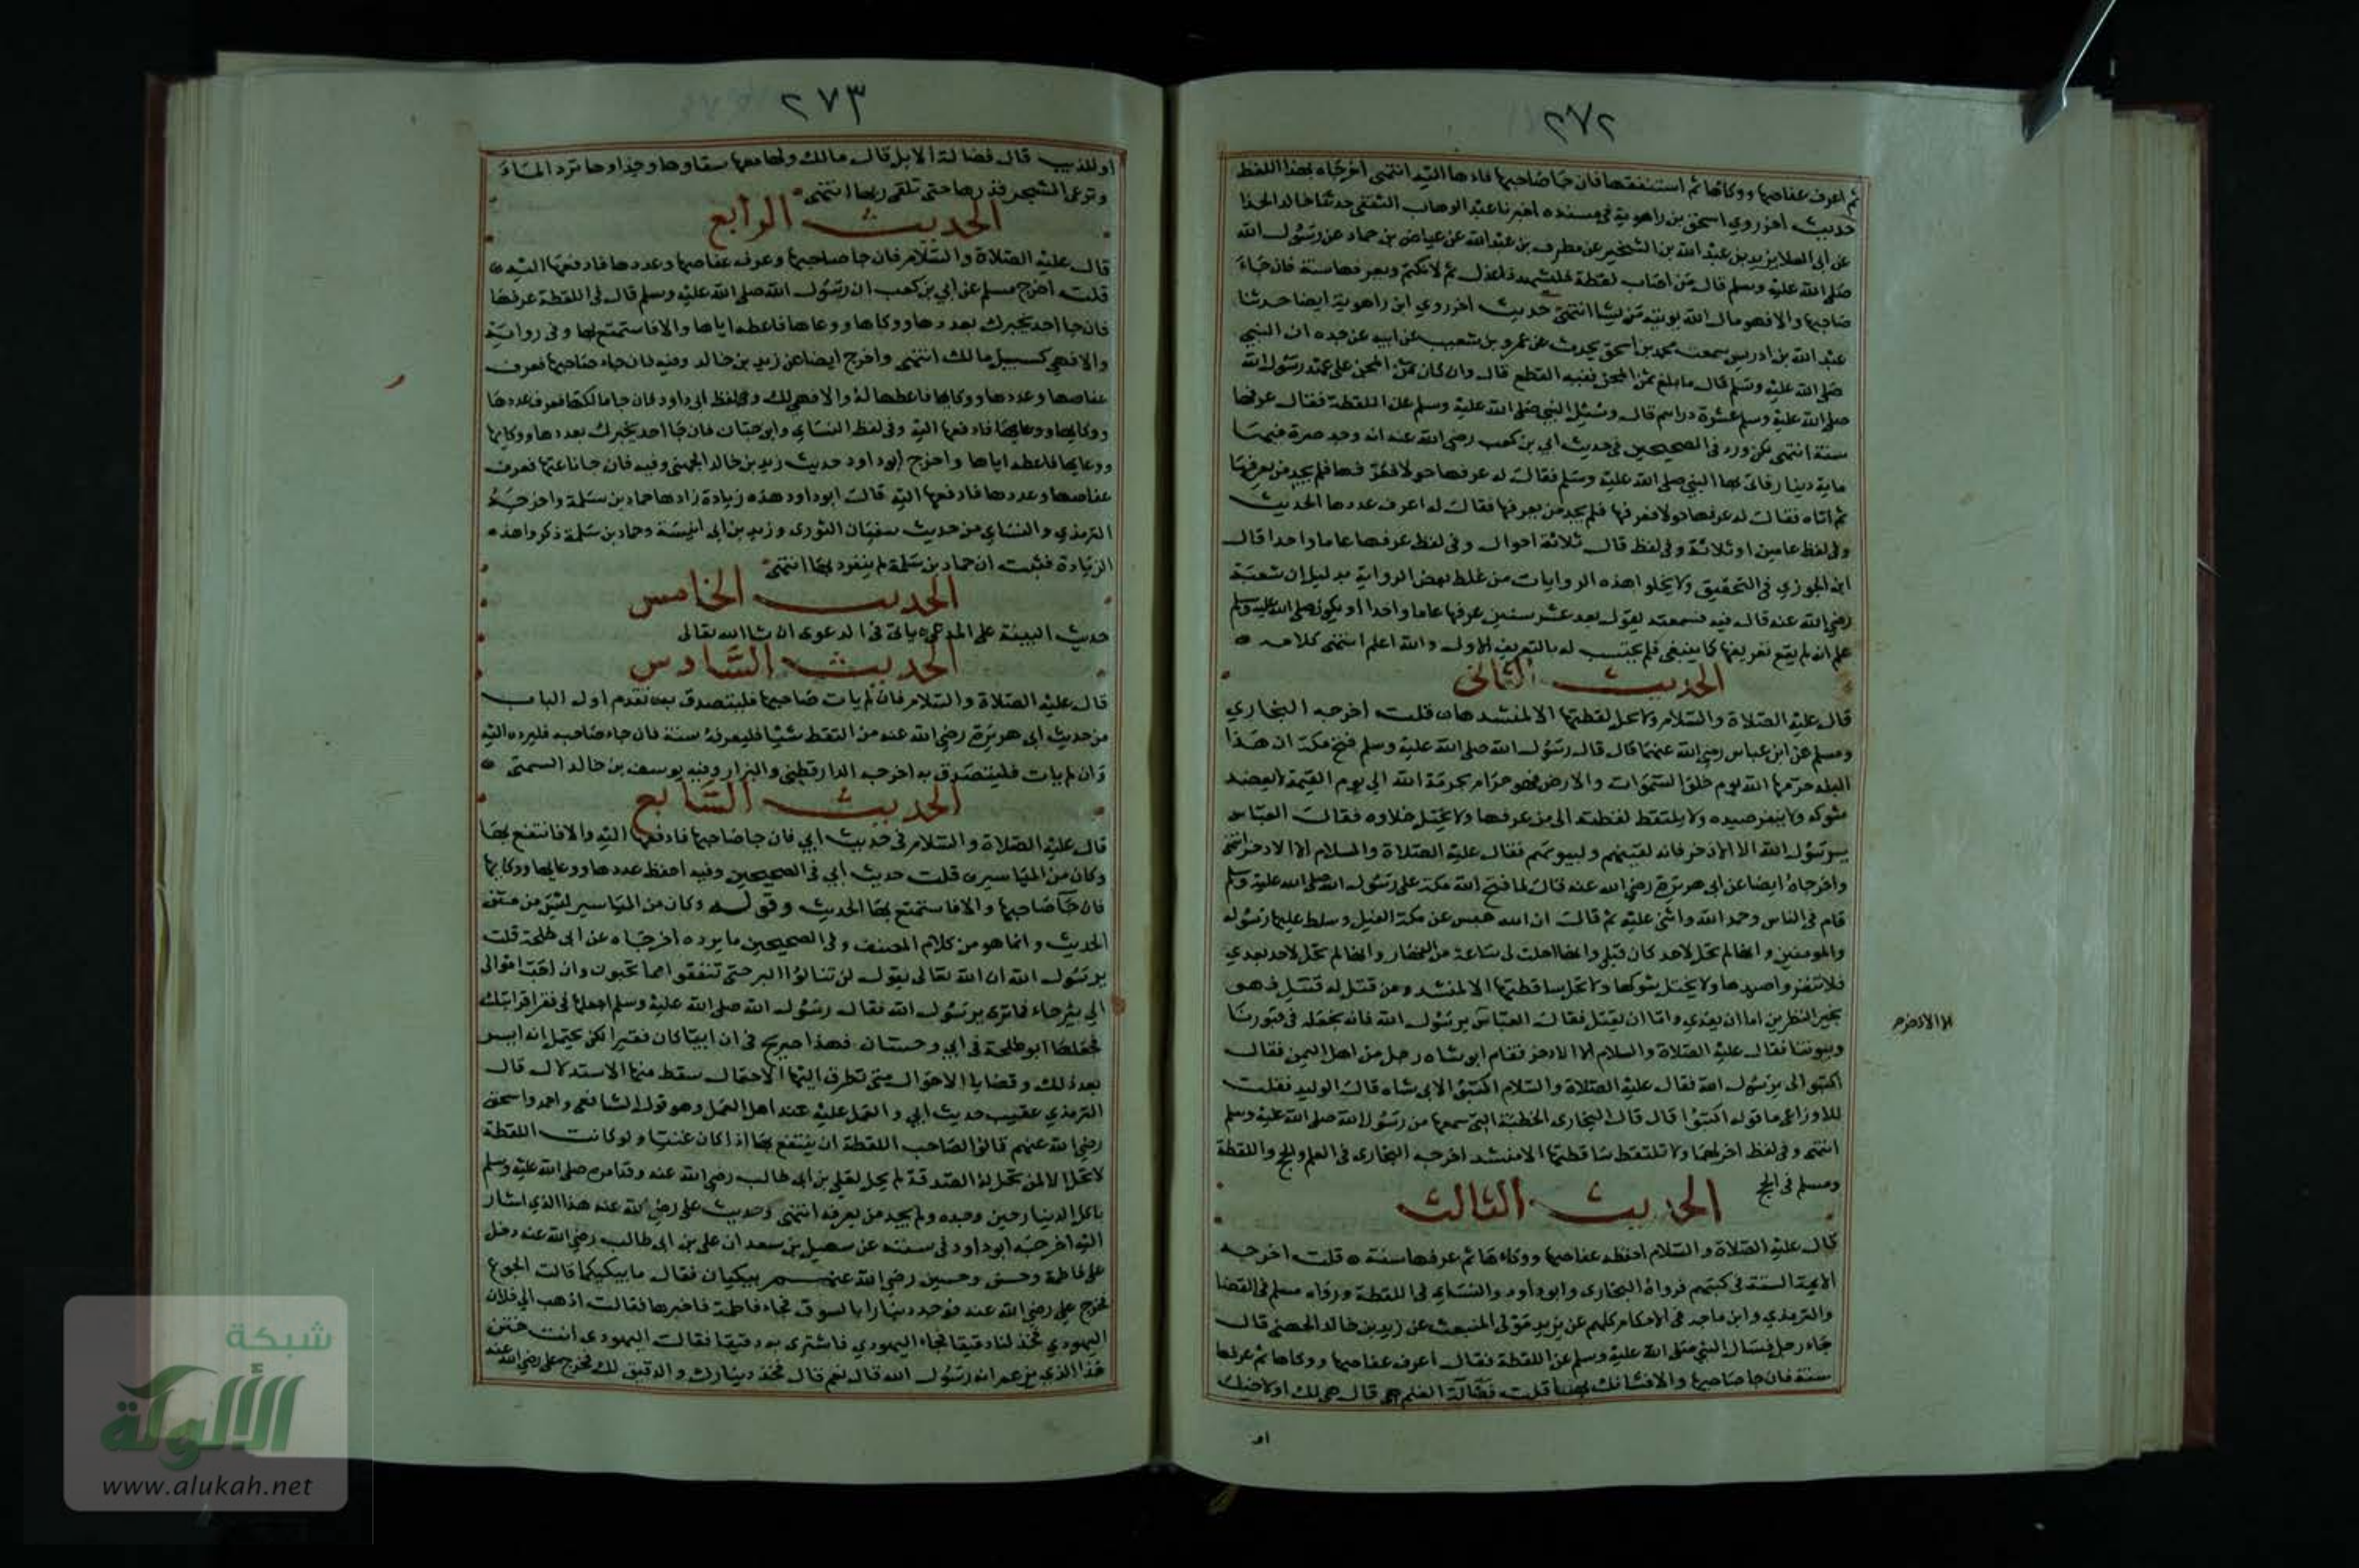 ٢٧٢
ثم اعرف عفاصها ووكاها ثم استنفقها فان جا صاحبها فادها اليه انتهى اخرجاه بهذا اللفظ
حديث اخر روي اسحق بن راهوية في مسنده اخبرنا عبد الوهاب الثقفي حدثنا خالد الحذا
عن ابي العلا يزيد بن عبد الله بن الشخير عن مطرف بن عبد الله عن عياض بن حماد عن رسول الله
صلى الله عليه وسلم قال من اصاب لقطة فليشهد ذا عدل ثم لا يكتم ويعرفها سنة فان جاء
صاحبها والا فهو مال الله يوتيه من يشا انتهى حديث اخر روي ابن راهوية ايضا حدثنا
عبد الله بن ادريس سمعت محمد بن اسحق يحدث عن عمرو بن شعيب عن ابيه عن جده ان النبي
صلى الله عليه وسلم قال ما بلغ ثمن المجن ففيه القطع قال وان كان ثمن المجن على عهد رسول الله
صلى الله عليه وسلم عشرة دراهم قال وسئل النبي صلى الله عليه وسلم عن اللقطة فقال عرفها
سنة انتهى لكن ورد في الصحيحين في حديث ابي بن كعب رضي الله عنه انه وجد صرة فيها
ماية دينار فاتى بها النبي صلى الله عليه وسلم فقال له عرفها حولا فعرفها فلم يجد من يعرفها
ثم اتاه فقال له عرفها حولا فعرفها فلم يجد من يعرفها فقال له اعرف عددها الحديث
وفي لفظ عامين او ثلاثة وفي لفظ قال ثلاثة احوال وفي لفظ عرفها عاما واحدا قال
ابن الجوزي في التحقيق ولا يخلوا هذه الروايات من غلط بعض الرواية بدليل ان شعبة
رضي الله عنه قال فيه فسمعته يقول بعد عشر سنين عرفها عاما واحدا او يكون صلى الله عليه وسلم
علم انه لم يقع تعريفها كما ينبغي فلم يحتسب له بالتعريف الاول والله اعلم انتهى كلامه
الحديث الثاني
قال عليه الصلاة والسلام ولا تحل لقطتها الا لمنشدها قلت اخرجه البخاري
ومسلم عن ابن عباس رضي الله عنهما قال قال رسول الله صلى الله عليه وسلم فتح مكة ان هذا
البلد حرمها الله يوم خلق السموات والارض فهو حرام بحرمة الله الى يوم القيمة لا يعضد
شوكه ولا ينفر صيده ولا يلتقط لقطته الى من عرفها ولا يختل خلاوه فقال العباس
يرسول الله الا الاذخر فانه لقينهم ولبيوتهم فقال عليه الصلاة والسلام الا الاذخر انتهى
واخرجاه ايضا عن ابي هريرة رضي الله عنه قال لما فتح الله مكة على رسول الله صلى الله عليه وسلم
قام في الناس وحمد الله واثنى عليه ثم قال ان الله حبس عن مكة الفيل وسلط عليها رسوله
والمومنين وانها لم تحل لاحد كان قبلي وانها احلت لي ساعة من النهار وانها لم تحل لاحد بعدي
فلا تنفروا صيدها ولا يختل شوكها ولا تحل ساقطتها الا لمنشد ومن قتل له قتيل فهو
بخير النظرين اما ان يفدي واما ان يقتل فقال العباس يرسول الله فانه نجعله في قبورنا
الا الاذخر
وبيوتنا فقال عليه الصلاة والسلام الا الاذخر فقام ابو شاه رجل من اهل اليمن فقال
اكتبوا لي يرسول الله فقال عليه الصلاة والسلام اكتبوا لابي شاه قال الوليد فقلت
للاوزاعي ما قوله اكتبوا قال قال البخاري الخطبة التي سمعها من رسول الله صلى الله عليه وسلم
انتهى وفي لفظ اخر لهما ولا تلتقط ساقطتها الا منشد اخرجه البخاري في العلم والحج واللقطة
ومسلم في الحج
الحديث الثالث
قال عليه الصلاة والسلام احفظ عفاصها ووكاءها ثم عرفها سنة قلت اخرجه
الايمة الستة في كتبهم فرواه البخاري وابو داود والنسائي في اللقطة ورواه مسلم في القضا
والترمذي وابن ماجه في الاحكام كلهم عن يزيد مولى المنبعث عن زيد بن خالد الجهني قال
جاء رجل فسال النبي صلى الله عليه وسلم عن اللقطة فقال اعرف عفاصها ووكاها ثم عرفها
سنة فان جا صاحبها والا فشانك بها قلت فضالة الغنم قال هي لك او لاخيك
او
٢٧٣
او للذيب قال فضالة الابل قال مالك ولها معها سقاوها وحذاوها ترد الماء
وترعى الشجر فذرها حتى تلقى ربها انتهى
الحديث الرابع
قال عليه الصلاة والسلام فان جا صاحبها وعرف عفاصها وعددها فادفعها اليه
قلت اخرج مسلم عن ابي بن كعب ان رسول الله صلى الله عليه وسلم قال في اللقطة عرفها
فان جا احد يخبرك بعددها ووكاها ووعاها فاعطه اياها والا فاستمتع بها وفي رواية
والا فهي كسبيل مالك انتهى واخرج ايضا عن زيد بن خالد وفيه فان جاء صاحبها فعرف
عفاصها وعددها ووكايها فاعطها له والا فهي لك وفي لفظ ابي داود فان جا مالكها فعرف عددها
ووكايها ووعايها فادفعها اليه وفي لفظ النسائي وابن حبان فان جا احد يخبرك بعددها ووكايها
ووعايها فاعطه اياها واخرج ابو داود حديث زيد بن خالد الجهني وفيه فان جا باغيها فعرف
عفاصها وعددها فادفعها اليه قال ابو داود هذه زيادة زادها حماد بن سلمة واخرجه
الترمذي والنسائي من حديث سفيان الثوري وزيد بن ابي انيسة وحماد بن سلمة ذكروا هذه
الزيادة فثبت ان حماد بن سلمة لم ينفرد بها انتهى
الحديث الخامس
حديث البينة على المدعي ياتي في الدعوى ان شا الله تعالى
الحديث السادس
قال عليه الصلاة والسلام فان لم يات صاحبها فليتصدق به تقدم اول الباب
من حديث ابي هريرة رضي الله عنه من التقط شيا فليعرفه سنة فان جاء صاحبه فليرده اليه
وان لم يات فليتصدق به اخرجه الدارقطني والبزار وفيه يوسف بن خالد السمتي
الحديث السابع
قال عليه الصلاة والسلام في حديث ابي فان جا صاحبها فادفعها اليه والا فانتفع بها
وكان من المياسير قلت حديث ابي في الصحيحين وفيه احفظ عددها ووعايها ووكايها
فان جا صاحبها والا فاستمتع بها الحديث وقوله وكان من المياسير ليس من متن
الحديث وانما هو من كلام المصنف وفي الصحيحين ما يرده اخرجاه عن ابي طلحة قلت
يرسول الله ان الله تعالى يقول لن تنالوا البر حتى تنفقوا مما تحبون وان احب اموالي
الي بيرحاء فما ترى يرسول الله فقال رسول الله صلى الله عليه وسلم اجعلها في فقرا قرابتك
فجعلها ابو طلحة في ابي وحسان فهذا صريح في ان ابيا كان فقيرا لكن يحتمل انه ايسر
بعد ذلك وقضايا الاحوال متى تطرق اليها الاحتمال سقط منها الاستدلال قال
الترمذي عقيب حديث ابي والعمل عليه عند اهل العلم وهو قول الشافعي واحمد واسحق
رضي الله عنهم قالوا لصاحب اللقطة ان ينتفع بها اذا كان غنيا ولو كانت اللقطة
لا تحل الا لمن تحل له الصدقة لم يحل لعلي بن ابي طالب رضي الله عنه وقد امره صلى الله عليه وسلم
باكل الدينار حين وجده ولم يجد من يعرفه انتهى وحديث علي رضي الله عنه هذا الذي اشار
اليه اخرجه ابو داود في سننه عن سهيل بن سعد ان علي بن ابي طالب رضي الله عنه دخل
على فاطمة وحسن وحسين رضي الله عنهم يبكيان فقال ما يبكيكما قالت الجوع
فخرج علي رضي الله عنه فوجد دينارا بالسوق فجاء فاطمة فاخبرها فقالت اذهب الى فلان
اليهودي فخذ لنا دقيقا فجاء اليهودي فاشترى به دقيقا فقال اليهودي انت ختن
هذا الذي يزعم انه رسول الله قال نعم قال فخذ دينارك والدقيق لك فخرج علي رضي الله عنه
شبكة
الألوكة
www.alukah.net